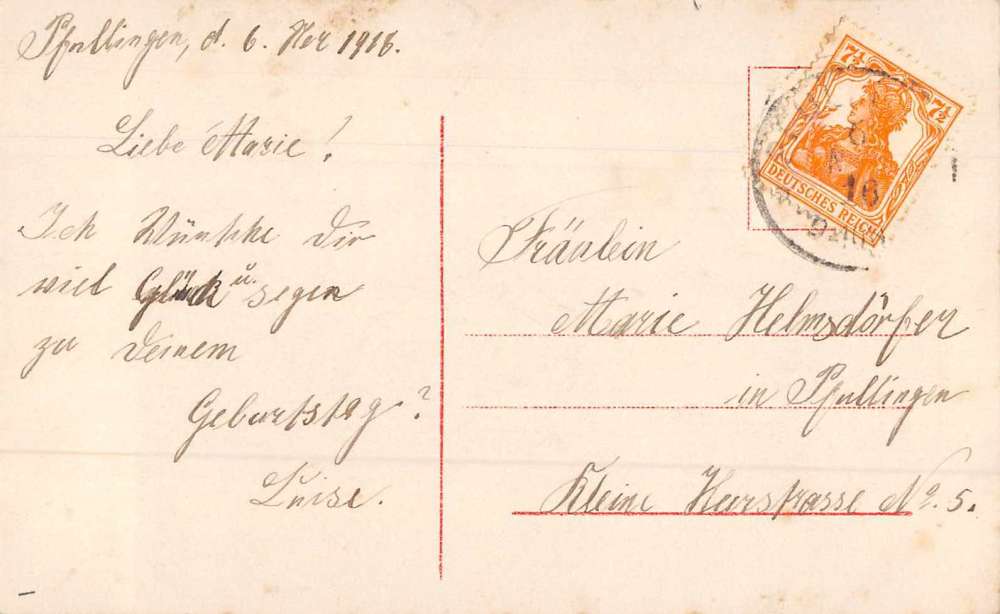 Pfullingen, d. 6. Nov 1916.
Liebe Marie!
Ich Wünsche dir
viel Glück u. segen
zu deinem
Geburtstag?
Luise.
7½
7½
DEUTSCHES REICH
16
Fräulein
Marie Helmsdörfer
in Pfullingen
Kleine Heerstrasse No. 5.